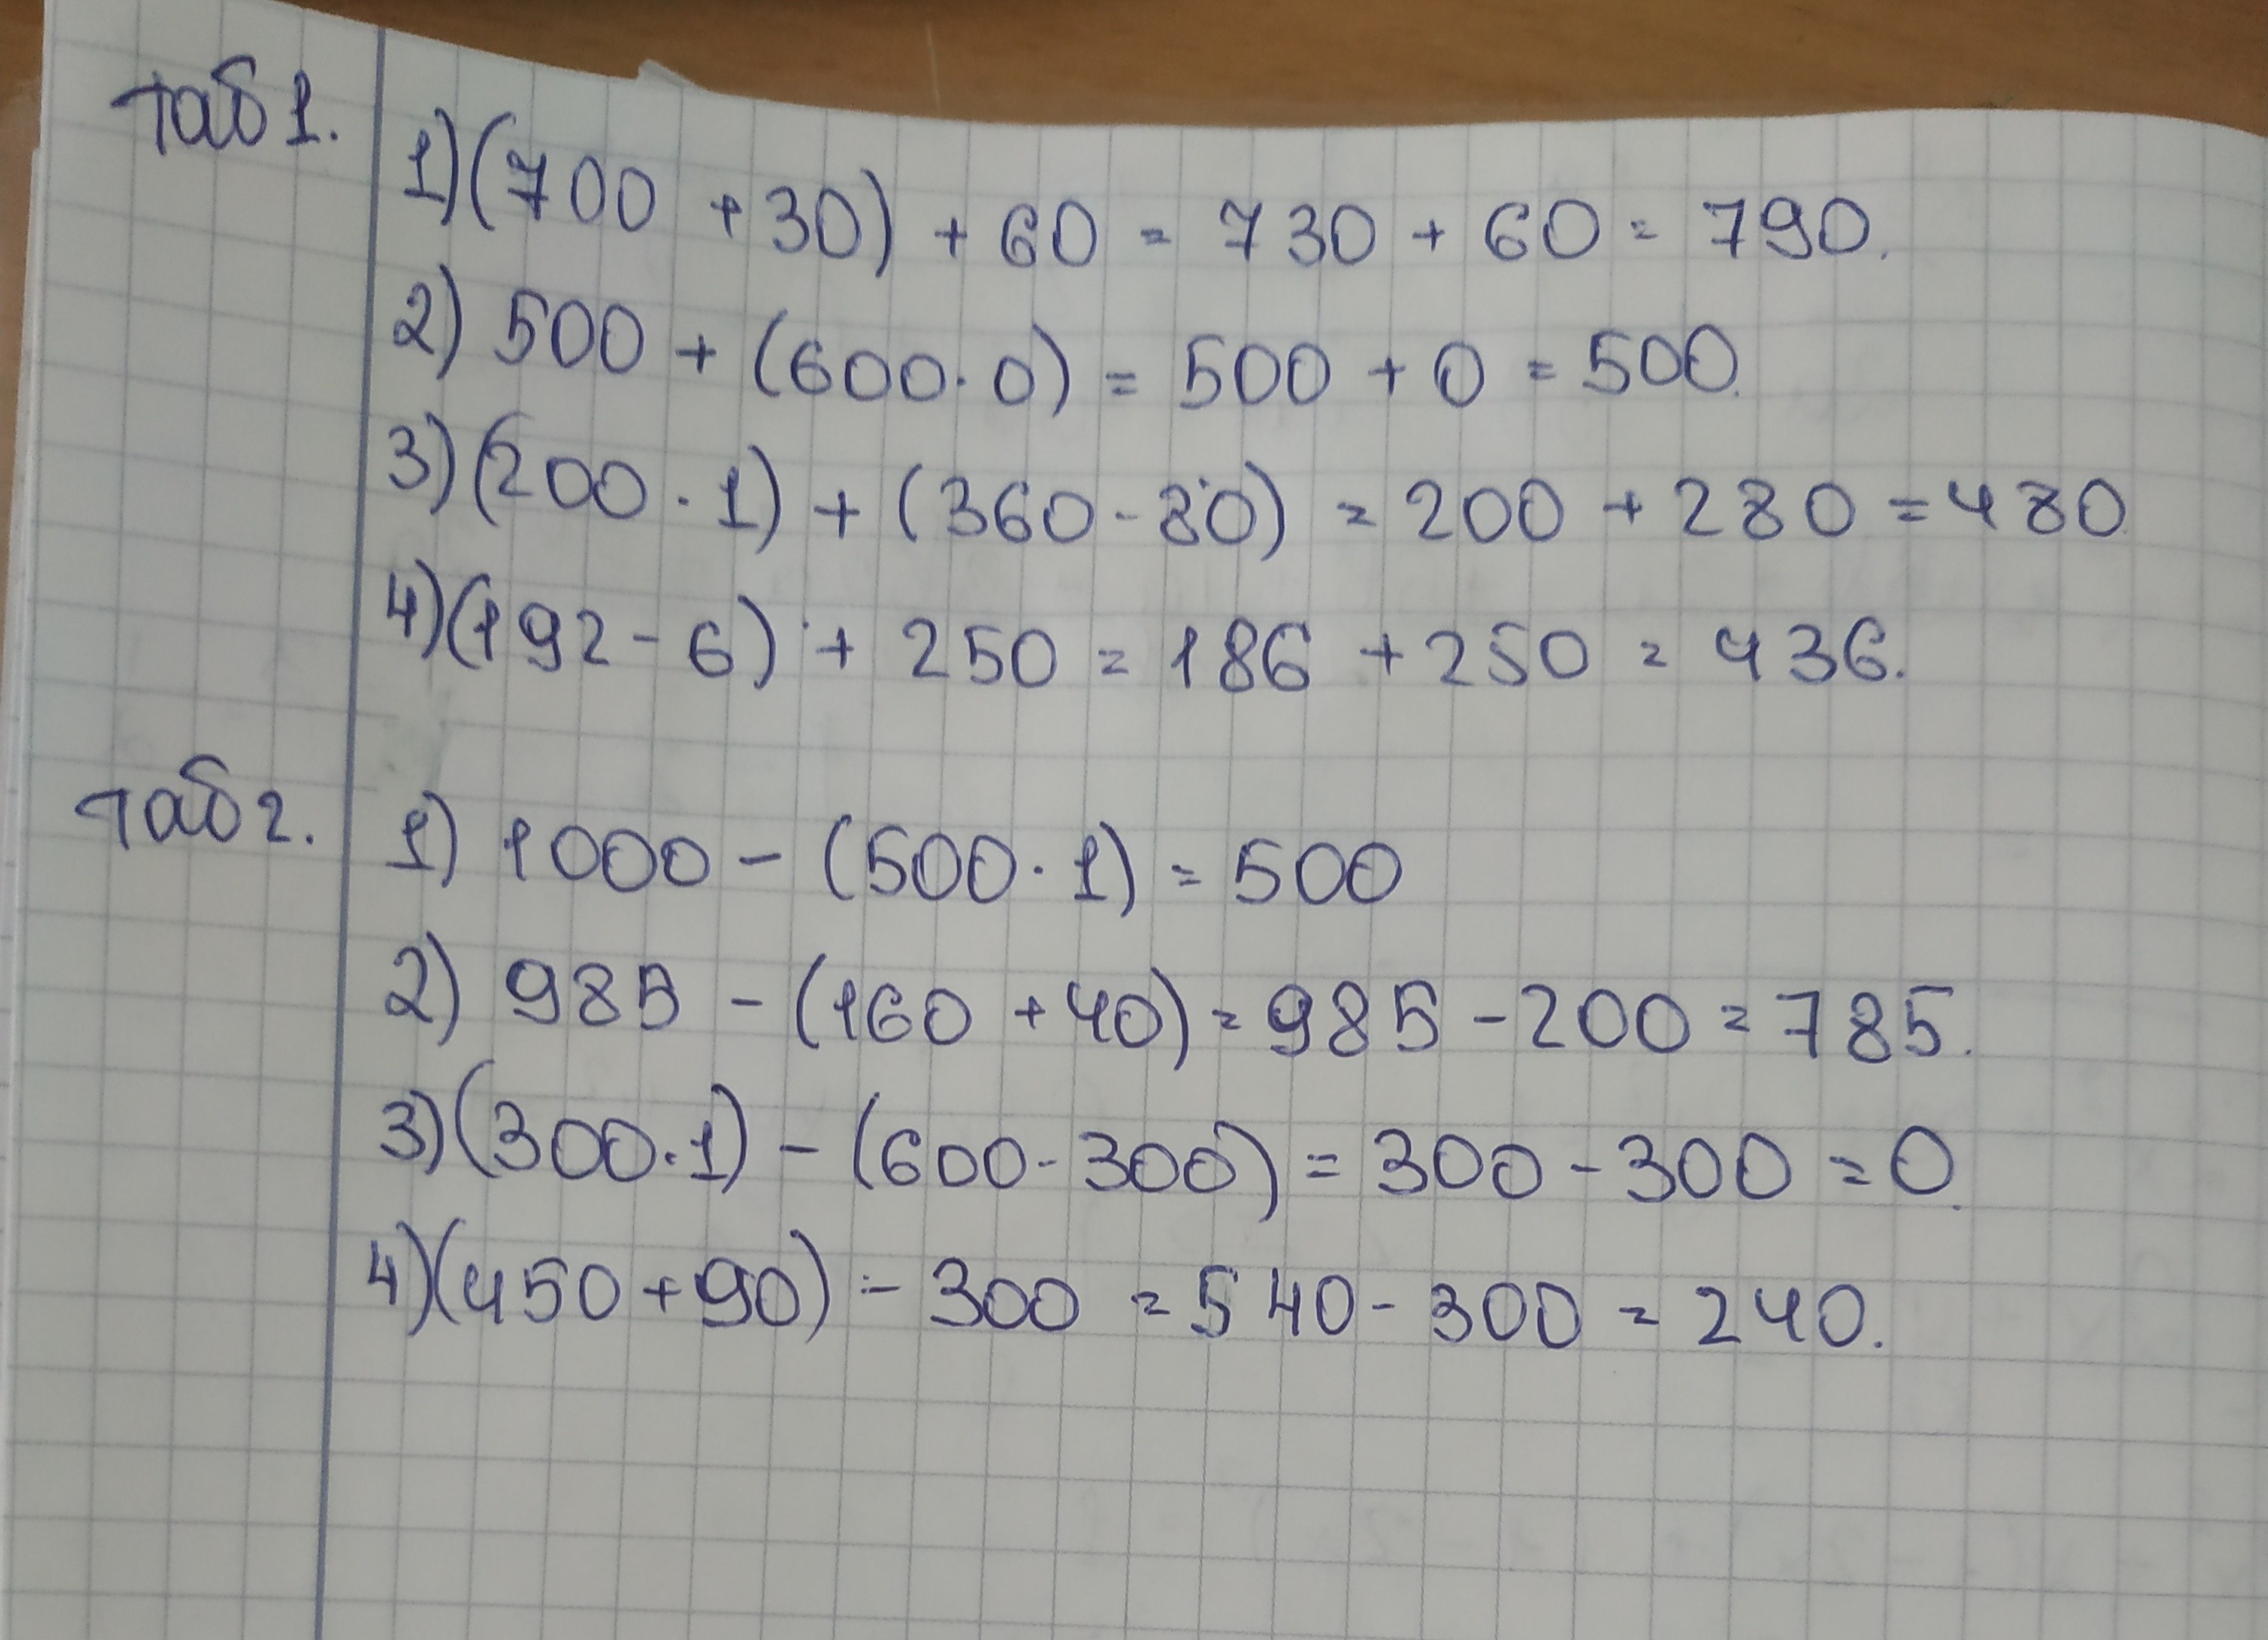 таб 1.
1) (700 + 30) + 60 = 730 + 60 = 790.
2) 500 + (600 · 0) = 500 + 0 = 500.
3) (200 · 1) + (360 - 80) = 200 + 280 = 480
4) (192 - 6) + 250 = 186 + 250 = 436.
таб 2.
1) 1000 - (500 · 1) = 500
2) 985 - (160 + 40) = 985 - 200 = 785.
3) (300 · 1) - (600 - 300) = 300 - 300 = 0.
4) (450 + 90) - 300 = 540 - 300 = 240.